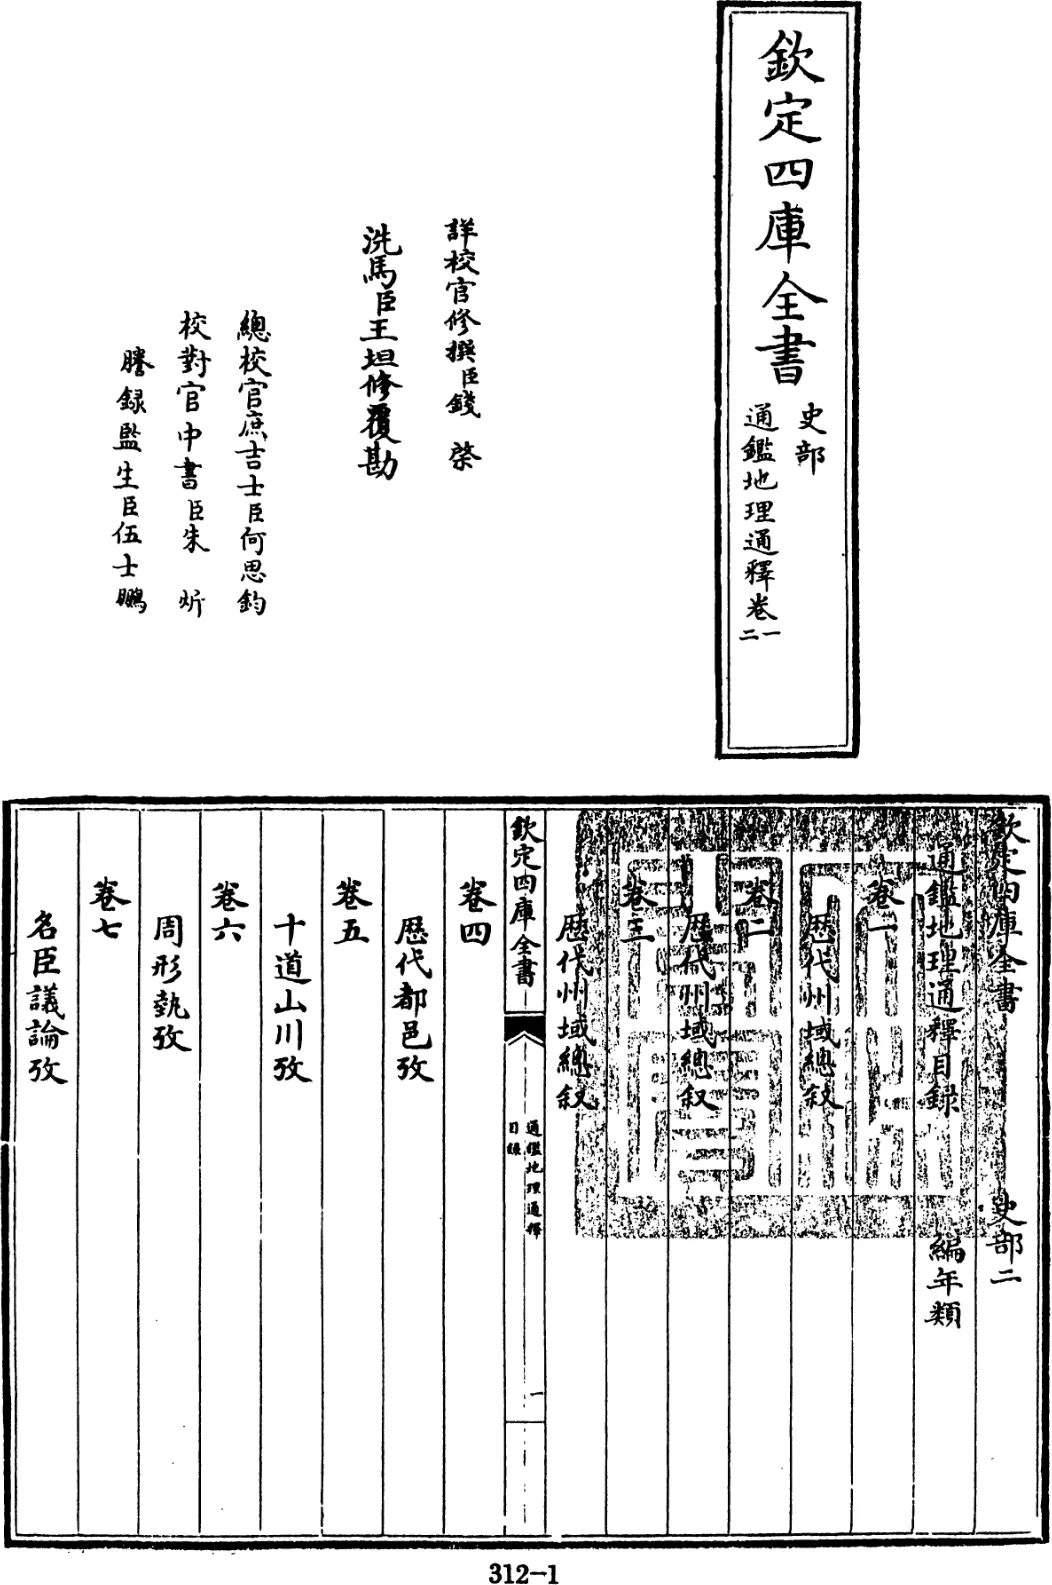 欽定四庫全書
史部
通鑑地理通釋卷一
二
詳校官修撰臣錢棨
洗馬臣王坦修覆勘
總校官庶吉士臣何思鈞
校對官中書臣朱炘
謄錄監生臣伍士鵬
欽定四庫全書
史部二
通鑑地理通釋目錄
編年類
卷一
歷代州域總叙
卷二
歷代州域總叙
卷三
歷代州域總叙
欽定四庫全書
通鑑地理通釋
目錄
一
卷四
歷代都邑攷
卷五
十道山川攷
卷六
周形埶攷
卷七
名臣議論攷
312-1